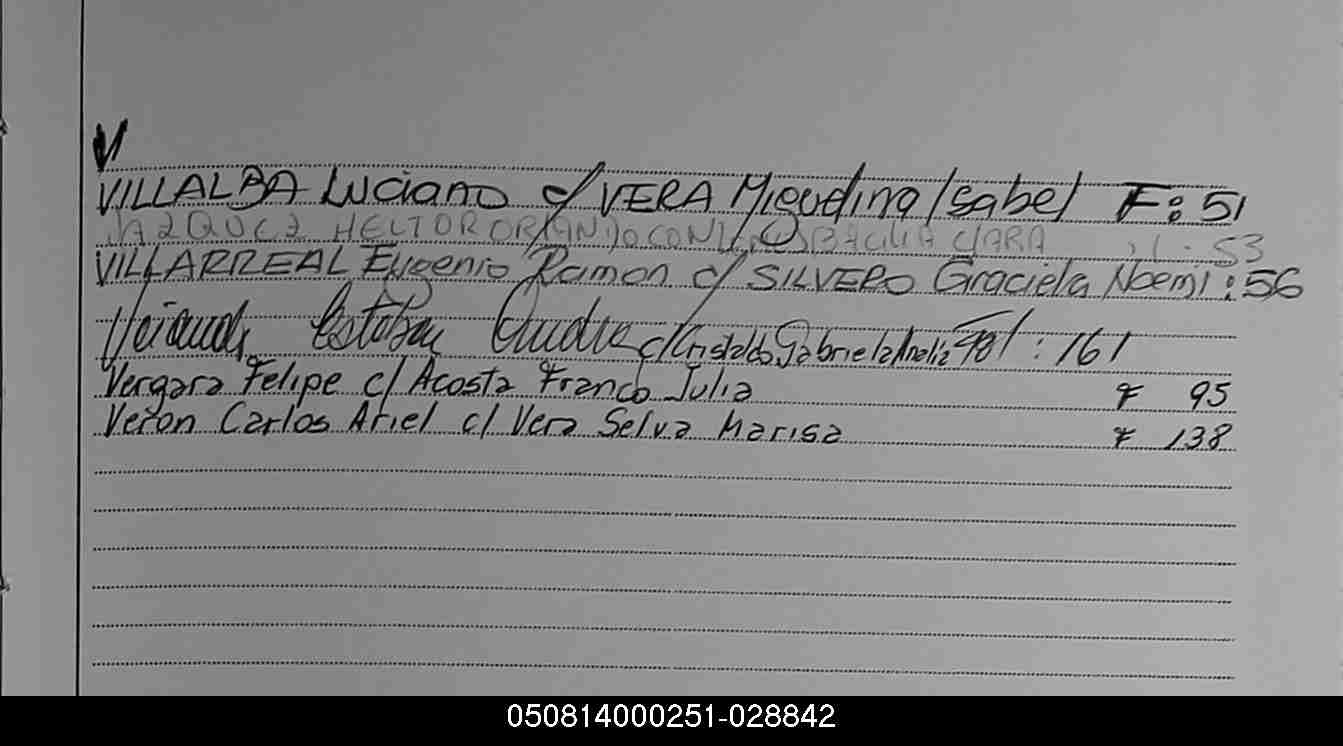 V
VILLALBA Luciano c/ VERA Miguelina Isabel F: 51
HECTOR ORLANDO CON CLARA : 53
VILLARREAL Eugenio Ramon c/ SILVERO Graciela Noemi : 56
Esteban c/ Cristaldo Gabriela Analia Fol : 161
Vergara Felipe c/ Acosta Franco Julia F 95
Veron Carlos Ariel c/ Vera Selva Marisa F 138
050814000251-028842